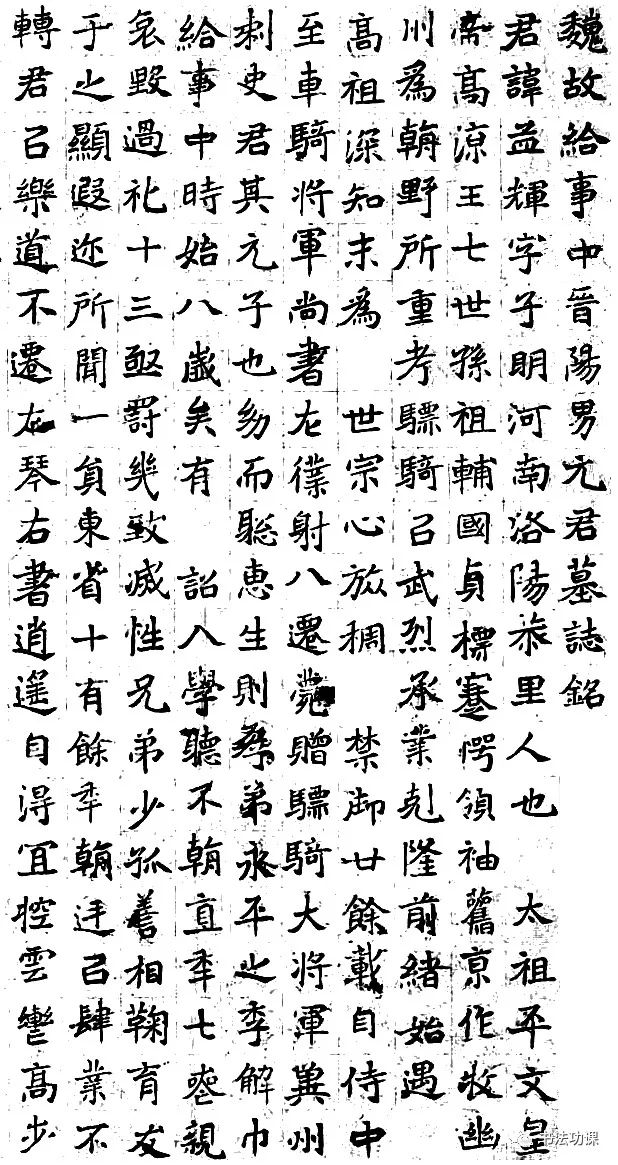 魏故給事中晉陽男元君墓誌銘
君諱孟輝字子明河南洛陽恭里人也 太祖平文皇
帝高涼王七世孫祖輔國貞標蹇愕領袖舊京作牧幽
川為朝野所重考驃騎以武烈承業剋隆前緒始遇
高祖深知末為 世宗心旅稠 禁御廿餘載自侍中
至車騎將軍尚書左僕射八遷薨贈驃騎大將軍冀州
刺史君其元子也幼而聡惠生則孝弟永平之季解巾
給事中時始八歲矣有 詔入學聽不朝直年七喪親
哀毀過礼十三亟罰幾致滅性兄弟少孤善相鞠育友
于之顯遐迩所聞一貟東省十有餘年朝迋以肆業不
轉君以樂道不遷左琴右書逍遥自得宜控雲轡高步
书法功课